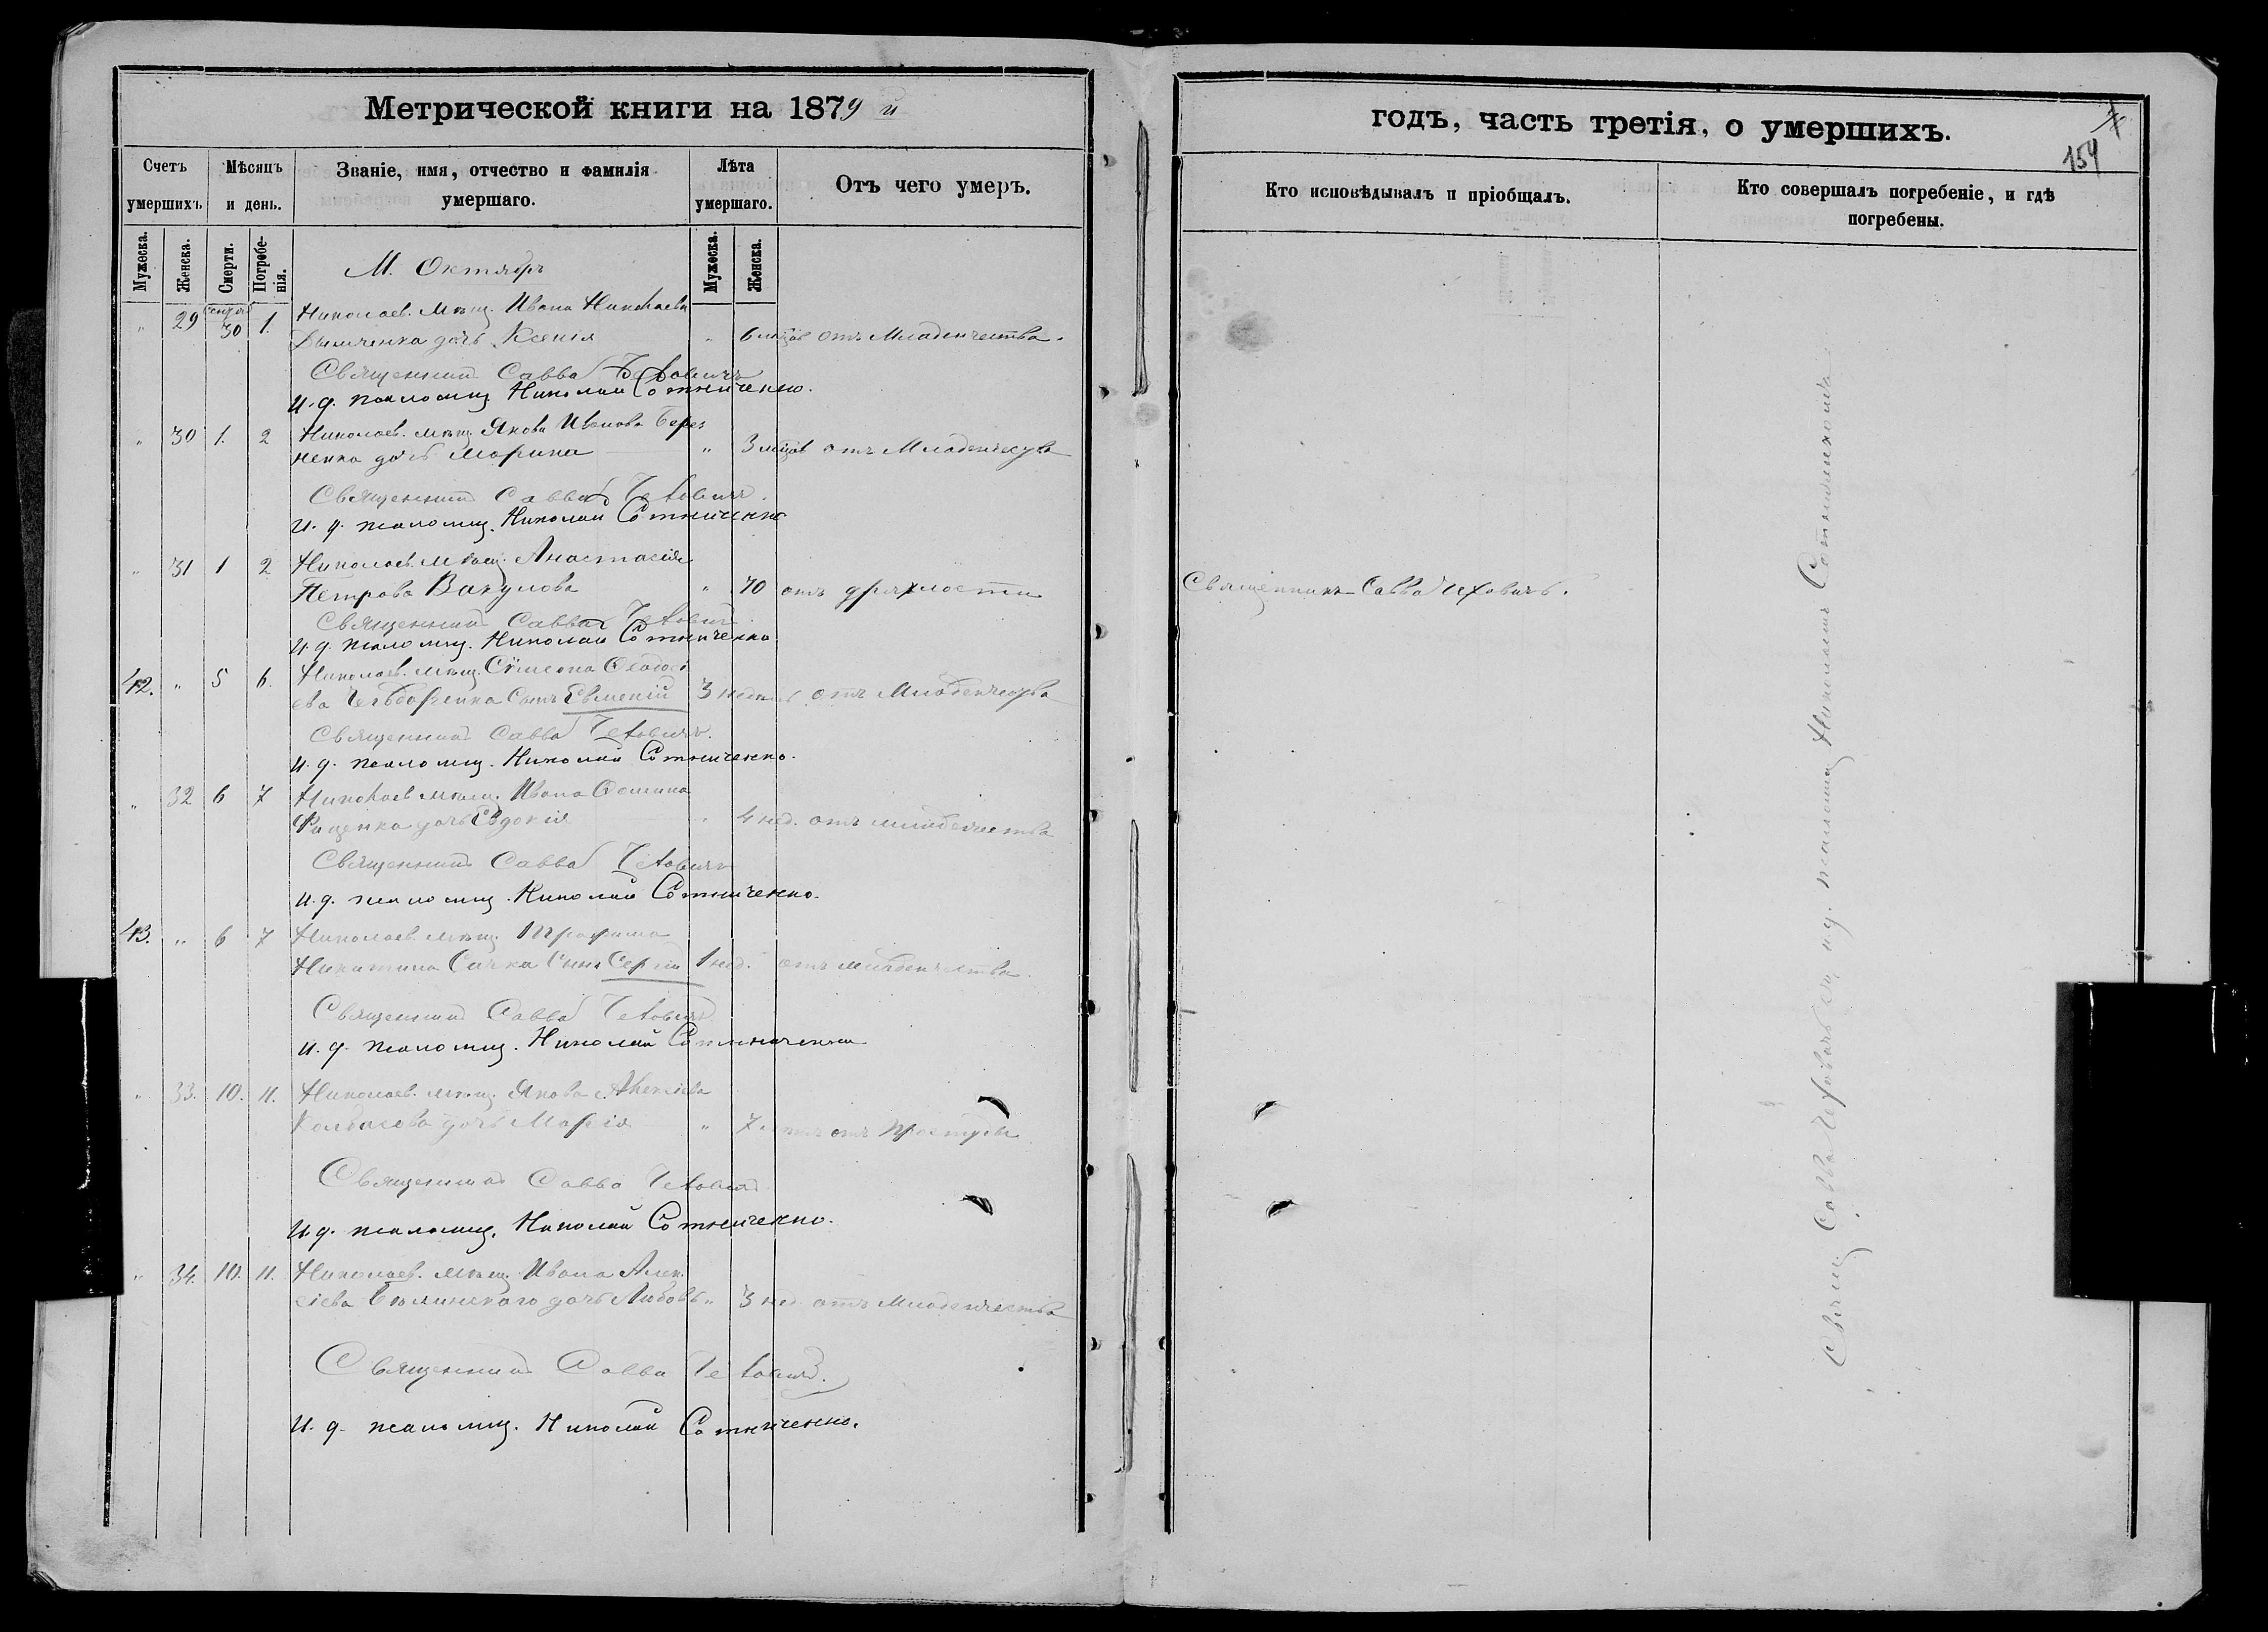 Метрической книги на 1879 й
годъ, часть третія, о умершихъ.
154
Счетъ умершихъ
Мѣсяцъ и день.
Званіе, имя, отчество и фамилія умершаго.
Лѣта умершаго.
Отъ чего умеръ.
Кто исповѣдывалъ и пріобщалъ.
Кто совершалъ погребеніе, и гдѣ погребены.
Мужеска.
Женска.
Смерти.
Погребе-нія.
Мужеска.
Женска.
М. Октябрь
" 29 30 1. Николаев. мѣщ. Ивана Николаева
дочь Ксенія " 6 мцов отъ Младенчества.
Священникъ Савва Чеховичъ
И. д. псаломщ. Николай Сотниченко.
" 30 1. 2 Николаев. мѣщ. Якова Иванова Берез
ненка дочь Марина " 3 мцов отъ Младенчества
Священникъ Савва Чеховичъ.
И. д. псаломщ. Николай Сотниченко
" 31 1 2 Николаев. мѣщ. Анастасія
Петрова Вакулова " 70 отъ дряхлости Священникъ Савва Чеховичъ.
Священникъ Савва Чеховичъ
И. д. псаломщ. Николай Сотниченко
42. " 5 6. Николаев. мѣщ. Сѵмеона Ѳеодосі
ева сынъ Евменій 3 отъ Младенчества
Священникъ Савва Чеховичъ.
И. д. псаломщ. Николай Сотниченко.
" 32 6 7 Николаев. мѣщ. Ивана Ѳомина
дочь Евдокія " 4 нед. отъ младенчества
Священникъ Савва Чеховичъ
И. д. псаломщ. Николай Сотниченко.
43. " 6 7 Николаев. мѣщ. Трофима
Никитина Сачка сынъ Сергій 1 нед. отъ младенчества.
Священникъ Савва Чеховичъ
И. д. псаломщ. Николай Сотниченко
" 33. 10. 11. Николаев. мѣщ. Якова Алексіева
Колбасева дочь Марія " 7 лѣтъ отъ простуды
Священникъ Савва Чеховичъ
И. д. псаломщ. Николай Сотниченко.
" 34. 10. 11. Николаев. мѣщ. Ивана Алек
сіева Бѣлинскаго дочь Любовь " 3 нед. отъ Младенчества
Священникъ Савва Чеховичъ.
И. д. псаломщ. Николай Сотниченко.
Свящ. Савва Чеховичъ съ и. д. псаломщ. Николаемъ Сотниченкомъ